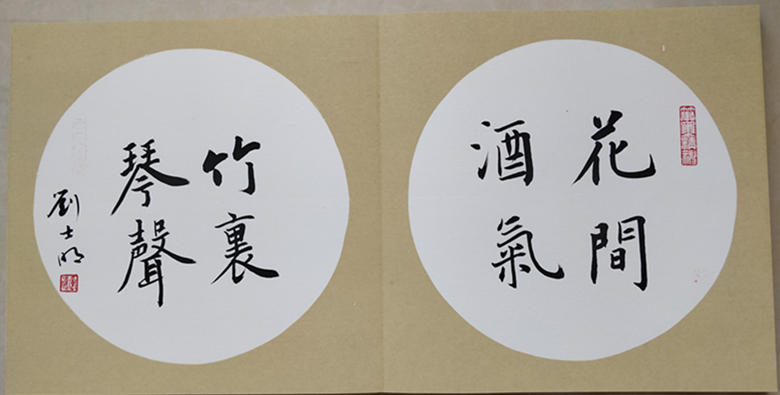 花間
酒氣
竹裏
琴聲
劉士明